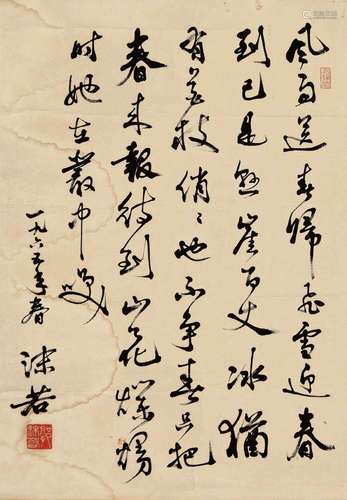 風雨送春歸飛雪迎春
到已是悬崖百丈冰猶
有花枝俏〻也不争春只把
春来報待到山花爛熳
时她在叢中笑
一九六五年春
沫若